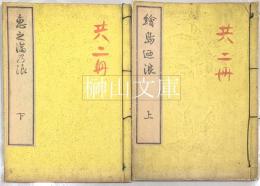 繪島廼浪
上
共二冊
恵之満乃浪
下
共二冊
榊山文庫